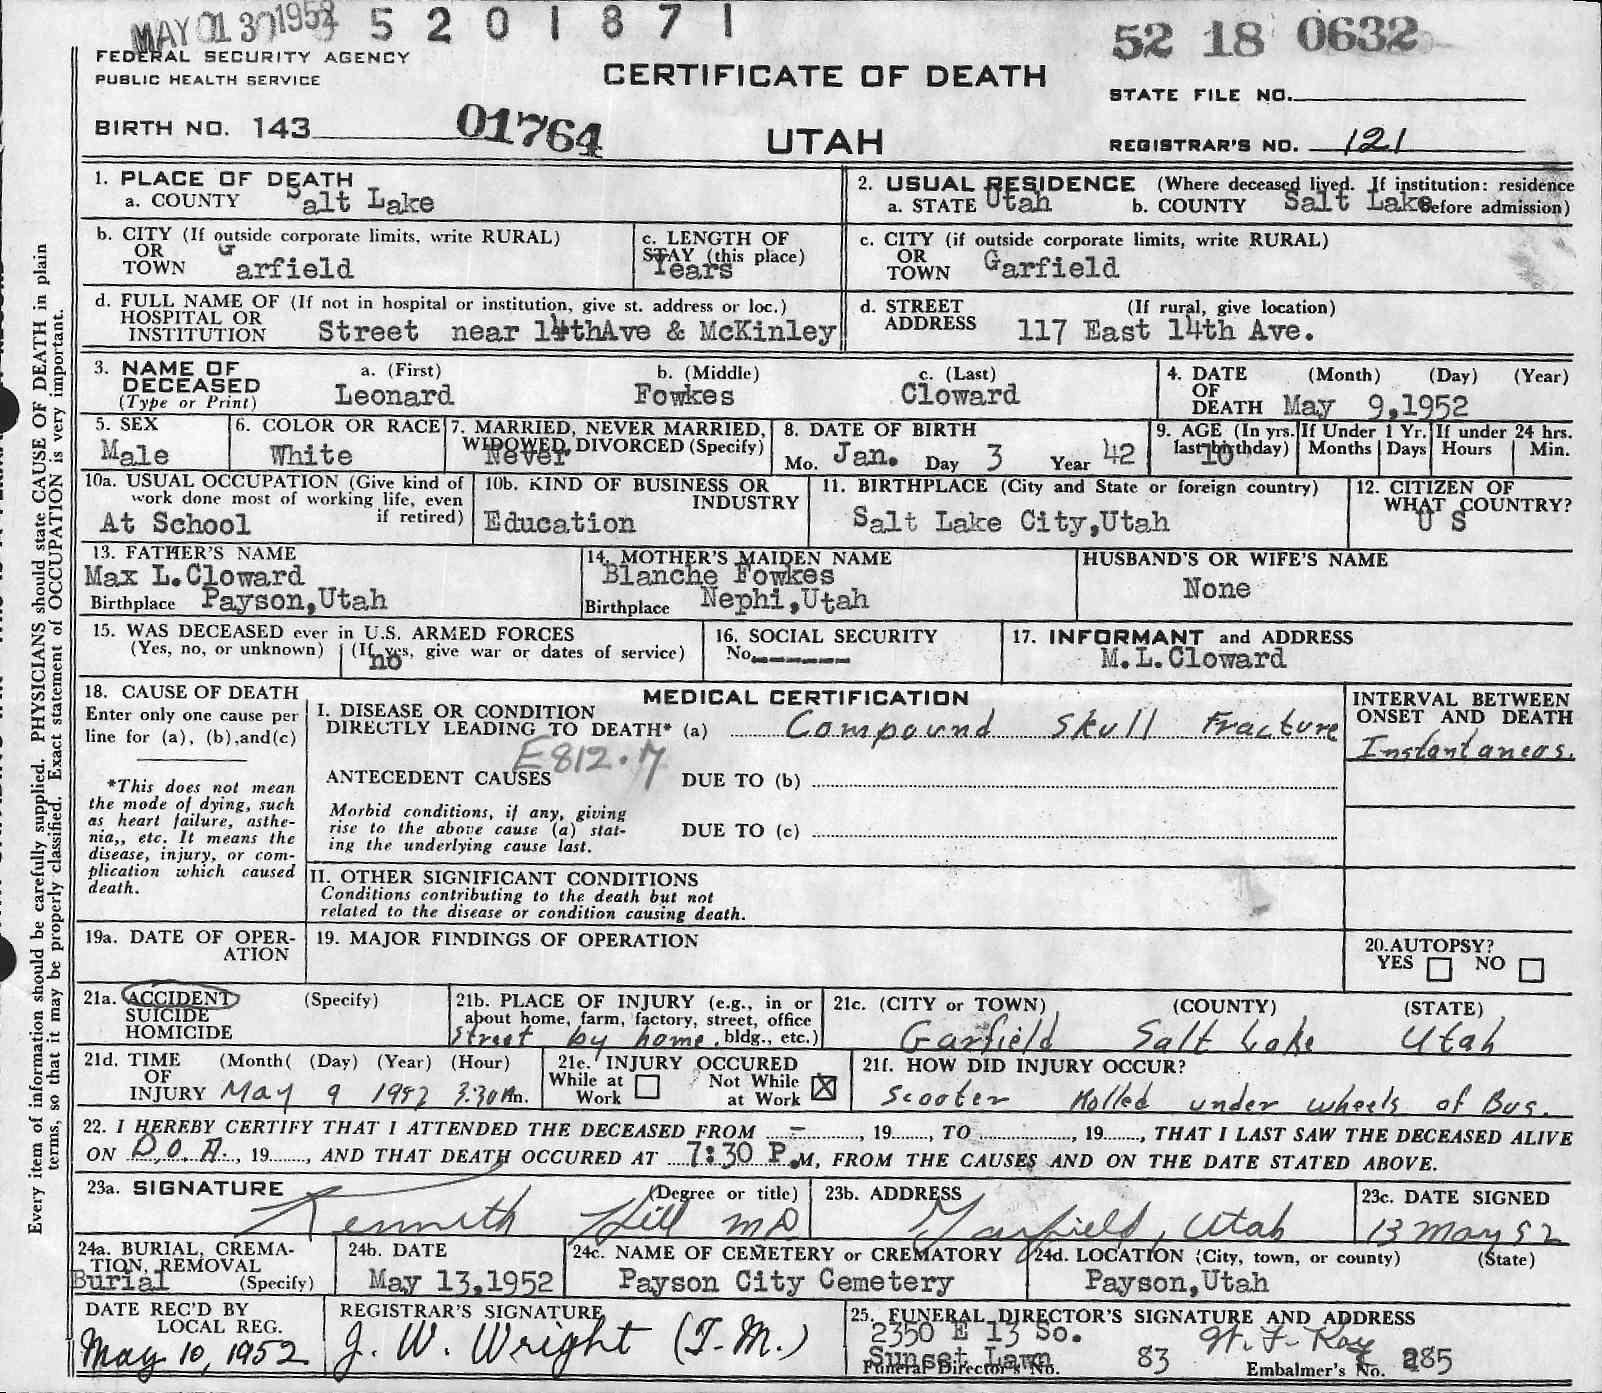 MAY 1952 5 2 0 1 8 7 1
52 18 0632
FEDERAL SECURITY AGENCY
PUBLIC HEALTH SERVICE
CERTIFICATE OF DEATH
STATE FILE NO.
BIRTH NO. 143 01764
UTAH
REGISTRAR'S NO. 121
1. PLACE OF DEATH
a. COUNTY Salt Lake
2. USUAL RESIDENCE (Where deceased lived. If institution: residence
a. STATE Utah b. COUNTY Salt Lake before admission)
b. CITY (If outside corporate limits, write RURAL)
OR
TOWN Garfield
c. LENGTH OF
STAY (this place)
Years
c. CITY (if outside corporate limits, write RURAL)
OR
TOWN Garfield
d. FULL NAME OF (If not in hospital or institution, give st. address or loc.)
HOSPITAL OR
INSTITUTION Street near 14thAve & McKinley
d. STREET (If rural, give location)
ADDRESS 117 East 14th Ave.
3. NAME OF
DECEASED
(Type or Print)
a. (First) b. (Middle) c. (Last)
Leonard Fowkes Cloward
4. DATE (Month) (Day) (Year)
OF
DEATH May 9,1952
5. SEX
Male
6. COLOR OR RACE
White
7. MARRIED, NEVER MARRIED,
WIDOWED, DIVORCED (Specify)
Never
8. DATE OF BIRTH
Mo. Jan. Day 3 Year 42
9. AGE (In yrs. last birthday)
10
If Under 1 Yr.
Months Days
If under 24 hrs.
Hours Min.
10a. USUAL OCCUPATION (Give kind of
work done most of working life, even
if retired)
At School
10b. KIND OF BUSINESS OR
INDUSTRY
Education
11. BIRTHPLACE (City and State or foreign country)
Salt Lake City,Utah
12. CITIZEN OF
WHAT COUNTRY?
U S
13. FATHER'S NAME
Max L.Cloward
Birthplace Payson,Utah
14. MOTHER'S MAIDEN NAME
Blanche Fowkes
Birthplace Nephi,Utah
HUSBAND'S OR WIFE'S NAME
None
15. WAS DECEASED ever in U.S. ARMED FORCES
(Yes, no, or unknown) (If yes, give war or dates of service)
no
16. SOCIAL SECURITY
No. ------
17. INFORMANT and ADDRESS
M.L.Cloward
18. CAUSE OF DEATH
Enter only one cause per
line for (a), (b),and(c)
*This does not mean
the mode of dying, such
as heart failure, asthe-
nia,, etc. It means the
disease, injury, or com-
plication which caused
death.
MEDICAL CERTIFICATION
I. DISEASE OR CONDITION
DIRECTLY LEADING TO DEATH* (a) Compound Skull Fracture
ANTECEDENT CAUSES DUE TO (b)
Morbid conditions, if any, giving
rise to the above cause (a) stat-
ing the underlying cause last.
DUE TO (c)
II. OTHER SIGNIFICANT CONDITIONS
Conditions contributing to the death but not
related to the disease or condition causing death.
INTERVAL BETWEEN
ONSET AND DEATH
Instantaneos.
19a. DATE OF OPER-
ATION
19. MAJOR FINDINGS OF OPERATION
20.AUTOPSY?
YES NO
21a. ACCIDENT (Specify)
SUICIDE
HOMICIDE
21b. PLACE OF INJURY (e.g., in or
about home, farm, factory, street, office
bldg., etc.)
Street by home
21c. (CITY or TOWN) (COUNTY) (STATE)
Garfield Salt Lake Utah
21d. TIME (Month( (Day) (Year) (Hour)
OF
INJURY May 9 1952
21e. INJURY OCCURED
While at Work Not While at Work
21f. HOW DID INJURY OCCUR?
Scooter Rolled under wheels of Bus.
22. I HEREBY CERTIFY THAT I ATTENDED THE DECEASED FROM - , 19 , TO , 19 , THAT I LAST SAW THE DECEASED ALIVE
ON D.O.A., 19 , AND THAT DEATH OCCURED AT 7:30 P.M, FROM THE CAUSES AND ON THE DATE STATED ABOVE.
23a. SIGNATURE (Degree or title)
Kenneth Hill MD
23b. ADDRESS
Garfield, Utah
23c. DATE SIGNED
13 May 52
24a. BURIAL, CREMA-
TION, REMOVAL
Burial (Specify)
24b. DATE
May 13,1952
24c. NAME OF CEMETERY or CREMATORY
Payson City Cemetery
24d. LOCATION (City, town, or county) (State)
Payson,Utah
DATE REC'D BY
LOCAL REG.
May 10, 1952
REGISTRAR'S SIGNATURE
J. W. Wright (T.M.)
25. FUNERAL DIRECTOR'S SIGNATURE AND ADDRESS
2350 E 13 So.
Sunset Lawn
Funeral Director's No. 83 Embalmer's No. 285
Every item of information should be carefully supplied. PHYSICIANS should state CAUSE OF DEATH in plain
terms, so that it may be properly classified. Exact statement of OCCUPATION is very important.